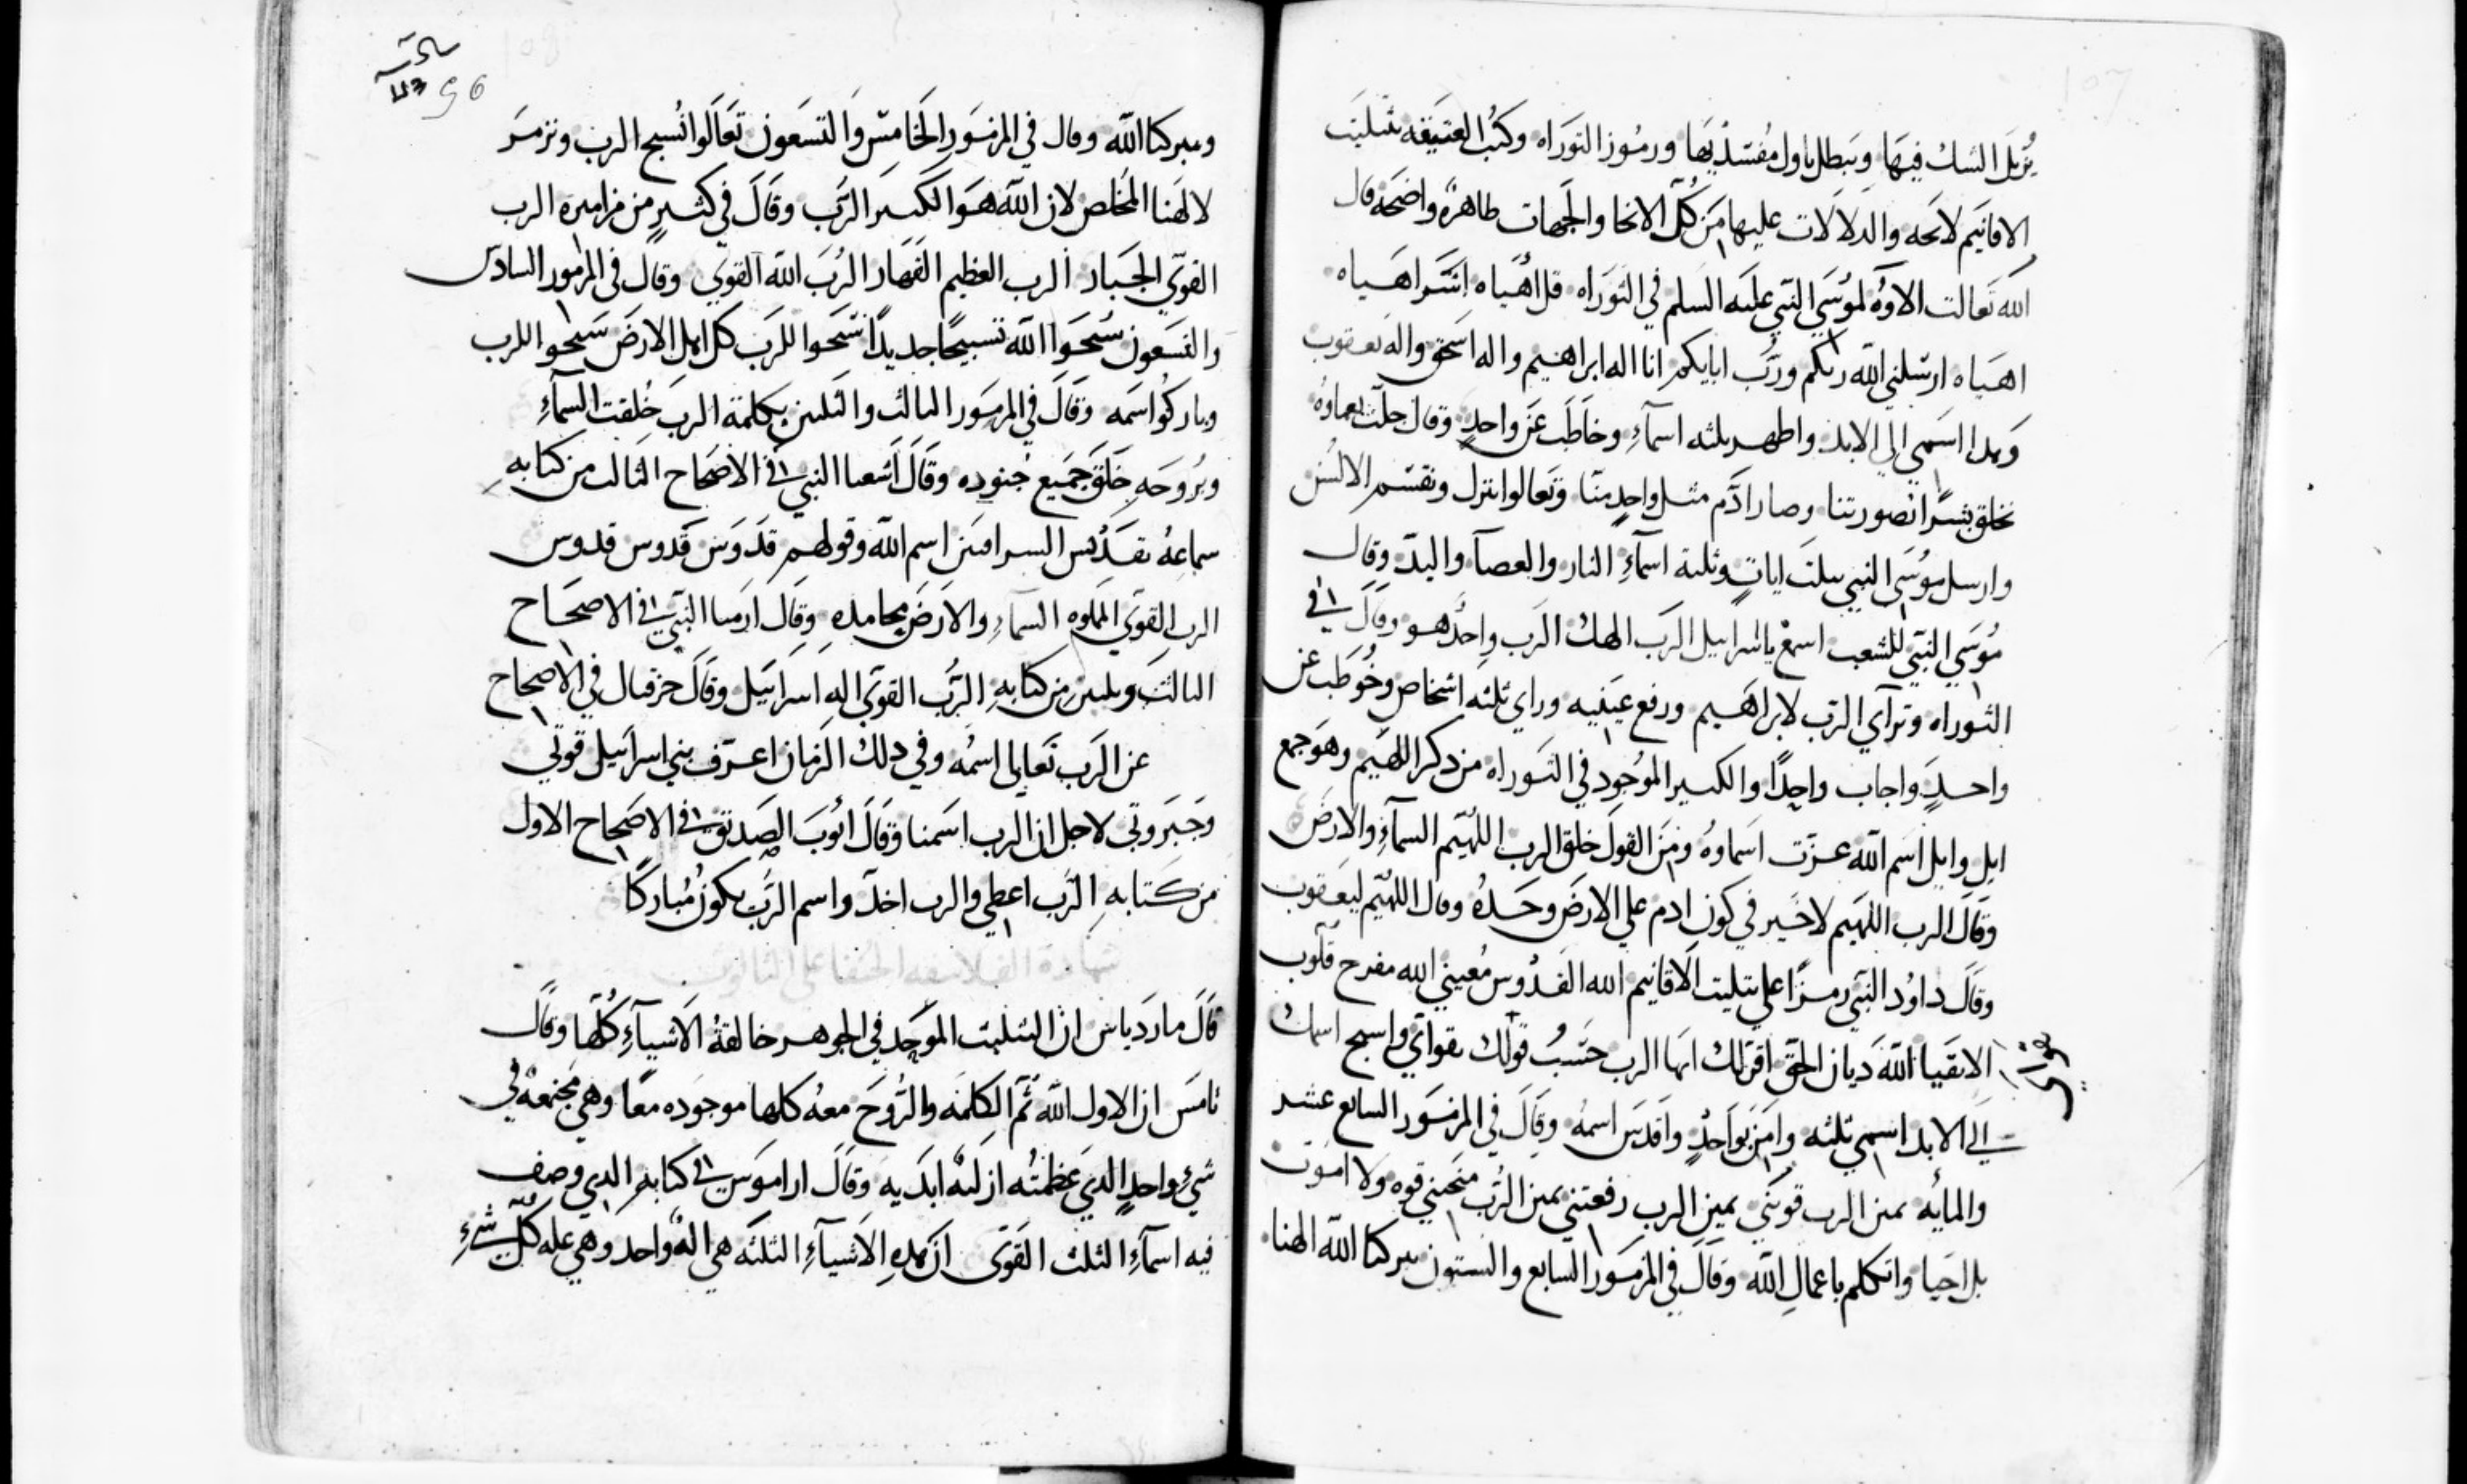 يُزيل الشك فيها ويبطل تاول مُفتنديها ورموز التوراه وكتب العتيقه بتثليث
الاقانيم لايحه والدلالات عليها من كل الانحا والجهات ظاهرة واضحه قال
الله تعالت الاوه لموسي النبي عليه السلم في التوراه قل اهياه اشر اهياه
اهياه ارسلني الله ربكم ورب ابايكم انا اله ابراهيم واله اسحق واله يعقوب
وهذا اسمي الي الابد واظهر بثلثه اسمآء وخاطب عن واحد وقال جلت نعماوه
نخلق بشرًا بصورتنا وصار ادم مثل واحد منا وتعالوا ننزل ونقسم الالسُن
وارسل موسي النبي بثلث ايات وثلثة اسمآء النار والعصآ واليد وقال
موسي النبي للشعب اسمع يا اسراييل الرب الهك الرب واحد هو وقال في
التوراه وترآي الرب لابراهيم ورفع عينيه وراي ثلثه اشخاص وخوطب عن
واحد واجاب واحدًا والكثير الموجود في التوراه من ذكر اللهيم وهو جمع
ايل وايل اسم الله عزت اسماوه ومن القول خلق الرب اللهيم السمآء والارض
وقال الرب اللهيم لا خير في كون ادم علي الارض وحده وقال اللهيم ليعقوب
وقال داود النبي رمزًا علي تثليث الاقانيم الله القدوس مُعيني الله مفرح قلوب
الاتقيا الله ديان الحق اقر لك ايها الرب حسب قولك بقواتي واسبح اسمك
الي الابد اسمي ثلثه وامن بواحد واقدس اسمه وقال في المزمور السابع عشر
والمايه يمين الرب قوتني يمين الرب رفعتني يمين الرب منحتني قوه ولا اموت
بل احيا واتكلم باعمال الله وقال في المزمور السابع والستون يبركنا الله الهنا
96
ويبركنا الله وقال في المزمور الخامس والتسعون تعالوا نُسبح الرب ونزمر
لالهنا المخلص لان الله هو الكبير الرب وقال في كثير من مزاميره الرب
القوي الجبار الرب العظيم القهار الرب الله القوي وقال في المزمور السادس
والتسعون سبحوا الله تسبيحًا جديدًا سبحوا للرب كل اهل الارض سبحوا للرب
وباركوا اسمه وقال في المزمور الثالث والثلثين بكلمة الرب خُلقت السمآء
وبروحه خلق جميع جنوده وقال اشعيا النبي في الاصحاح الثالث من كتابه
سماعهُ تقديس السرافين اسم الله وقولهم قدوس قدوس قدوس
الرب القوي المملوه السمآء والارض محامده وقال ارميا النبي في الاصحاح
الثالث وثلثين من كتابه الرب القوي اله اسراييل وقال حزقيال في الاصحاح
عن الرب تعالي اسمه وفي ذلك الزمان اعرف بني اسراييل قوتي
وجبروتي لاجل ان الرب اسمنا وقال ايوب الصديق في الاصحاح الاول
من كتابه الرب اعطي والرب اخذ واسم الرب يكون مُباركًا
شهادة الفلاسفه الحنفا علي الثالوث
قال مارديانس ان التثليث الموحد في الجوهر خالقة الاشيآء كلها وقال
تامس ان الاول الله ثم الكلمه والروح معه كلها موجوده معًا وهي مجتمعة في
شيء واحد الذي عظمته ازلية ابديه وقال اراموس في كتابه الذي وصف
فيه اسمآء الثلث القوي ان هذه الاشيآء الثلثه هي اله واحد وهي عله كل شيء